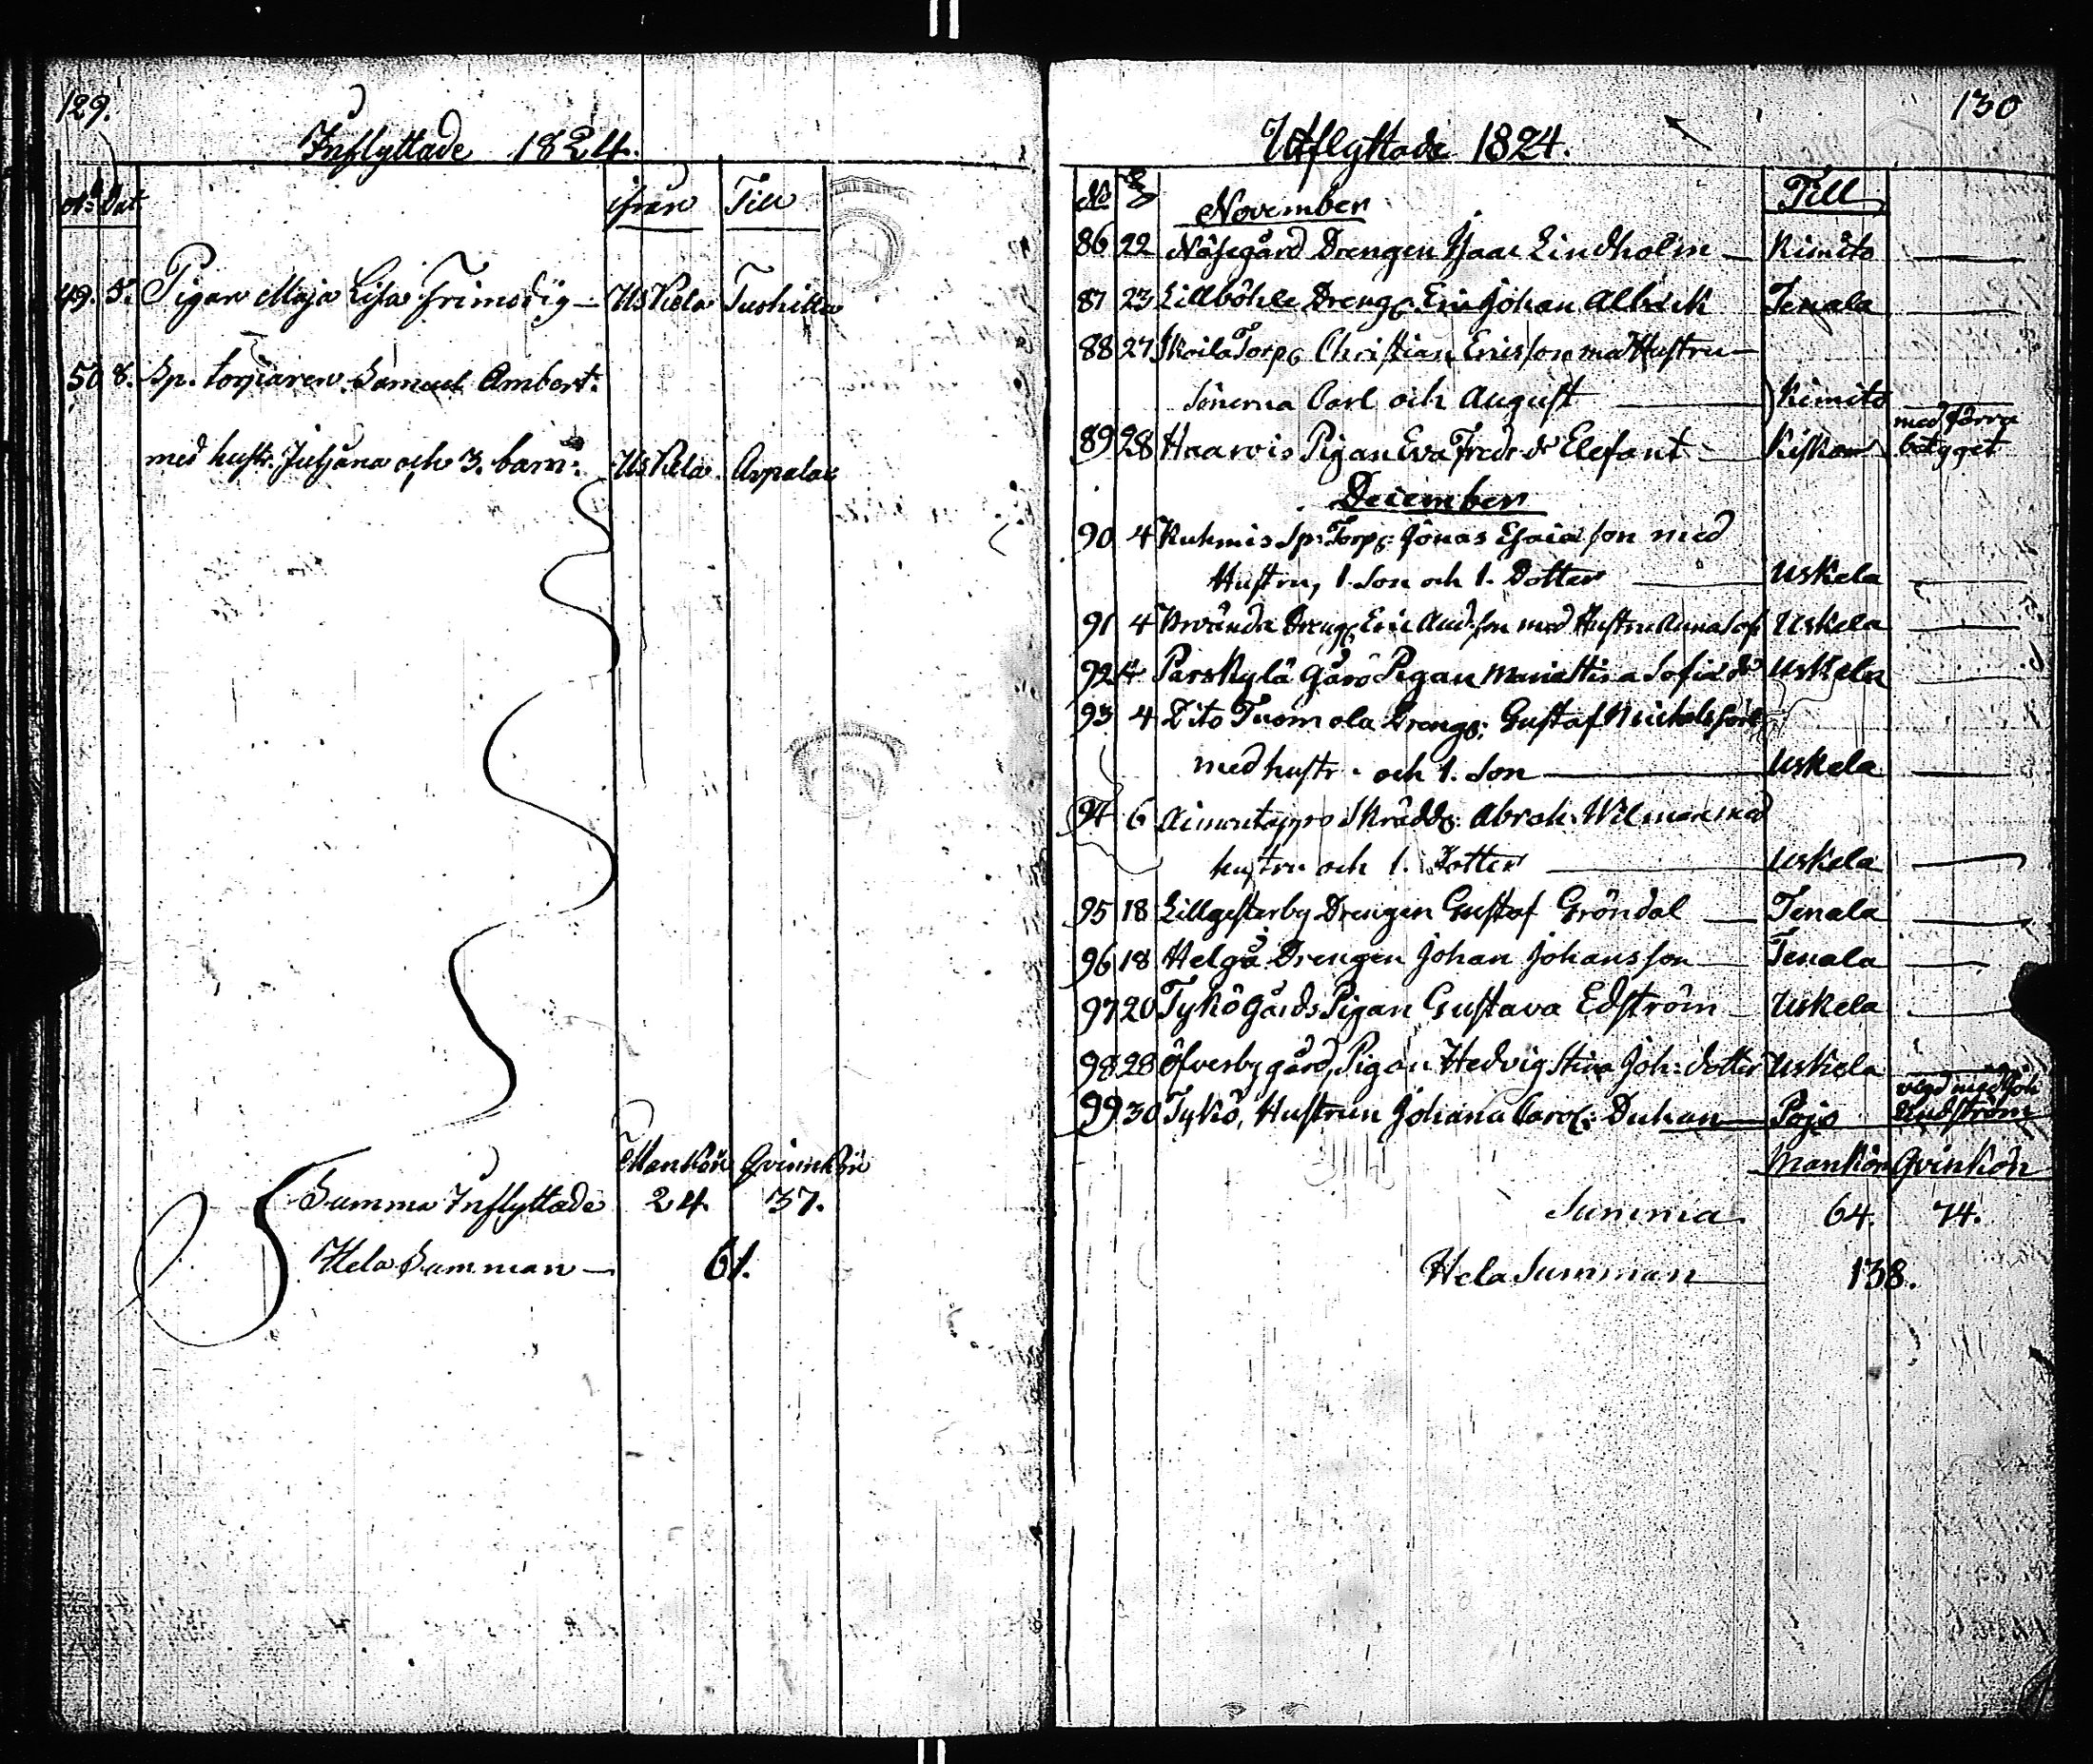 129.
Inflyttade 1824.
No Dat ifrån Till
49. 5. Pigan Maja Lisa Frimodig — Uskela Tuohittu
50 8. Sp. torparen Samuel Ambert:
med hustr. Juljana och 3. barn: Uskela Arpalax
Mankön Qvinnkön
Summa Inflyttade 24. 37.
Hela Summan — 61.
130
Utflyttade 1824.
No November Till
86 22 Näsegård Drengen Isaac Lindholm — Kimito
87 23 Lillböhle Dreng: Eric Johan Albeck Tenala
88 27 Skoila Torp: Christian Ericsson med Hustru —
Sönerna Carl och August Kimito
89 28 Haarvis Pigan Eva Fredr. Elefant — Kiskom med förra betyget
December
90 4 Kuhmis Sp: Torp: Jonas Esaiasson med
Hustru, 1. Son och 1. Dotter Uskela
91 4 Dreng: Eric And:son med Hustru Anna Sof: Uskela
92 4 Parskylä Gård Pigan Maria Stina Uskela
93 4 Dito Tuomola Dreng: Gustaf Michelsson
med hustr. och 1. Son Uskela
94 6 Skrädd: Abrah: Wilman med
hustru och 1. Dotter Uskela
95 18 Lillgesterby Drengen Gustaf Gröndal — Tenala
96 18 Helgå Drengen Johan Johansson Tenala
97 20 Tykö Gårds Pigan Gustava Edström — Uskela
98 28 Öfverby gård, Pigan Hedvig Stina Joh: dotter Uskela
99 30 Tykö, Hustrun Johana Carol: Duhan Pojo vigd med Joh Lindström
Mankön Qvinkön
Summa 64. 74.
Hela Summan 138.